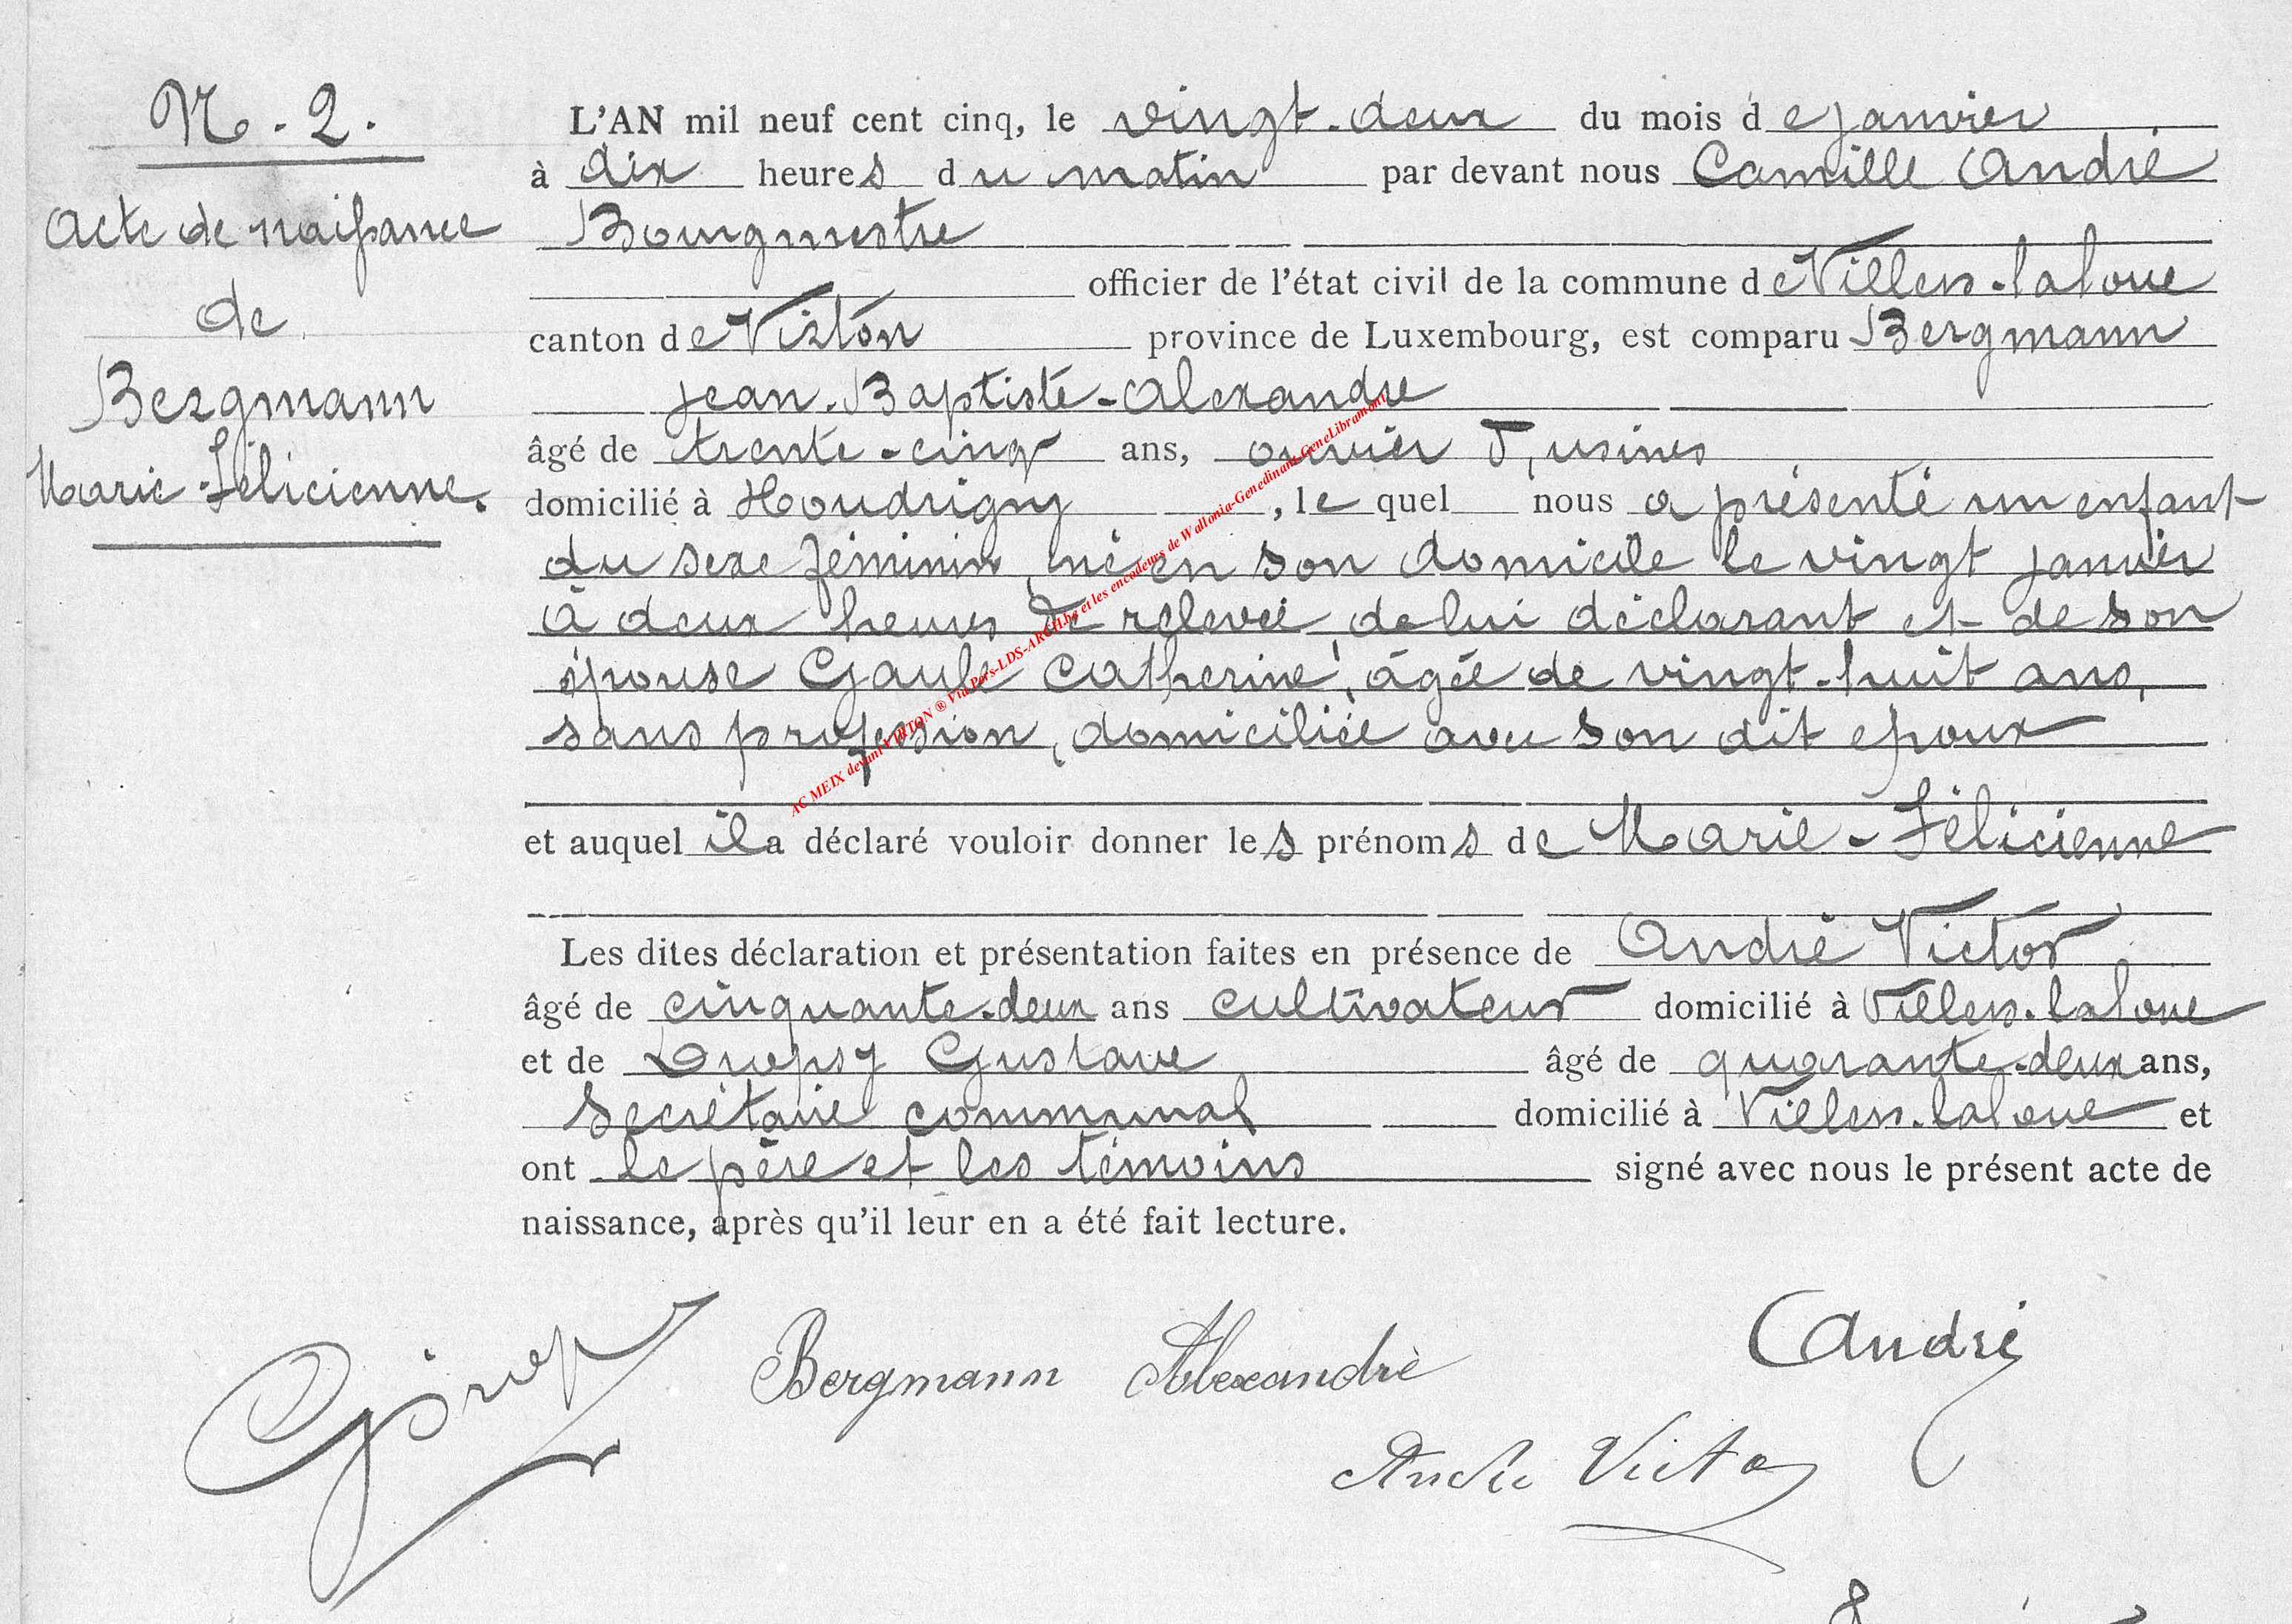 N°. 2.
Acte de naissance
de
Bergmann
Marie-Félicienne.
L'AN mil neuf cent cinq, le vingt-deux du mois de janvier
à dix heures du matin par devant nous Camille André
Bourgmestre
officier de l'état civil de la commune de Villers-la-loue
canton de Virton province de Luxembourg, est comparu Bergmann
Jean-Baptiste-Alexandre
âgé de trente-cinq ans, ouvrier d'usines
domicilié à Houdrigny, lequel nous a présenté un enfant
du sexe féminin, né en son domicile le vingt janvier
à deux heures de relevée, de lui déclarant et de son
épouse Catherine, âgée de vingt-huit ans,
sans profession, domiciliée avec son dit époux
et auquel il a déclaré vouloir donner les prénoms de Marie-Félicienne
Les dites déclaration et présentation faites en présence de André Victor
âgé de cinquante-deux ans cultivateur domicilié à Villers-la-loue
et de Dropsy Gustave âgé de quarante-deux ans,
secrétaire communal domicilié à Villers-la-loue et
ont le père et les témoins signé avec nous le présent acte de
naissance, après qu'il leur en a été fait lecture.
Bergmann Alexandre
CAndré
André Victor
AC MEIX devant VIRTON ® Via Pers-LDS-ARCH.be et les encodeurs de Wallonia-Genedinant-GeneLibramont